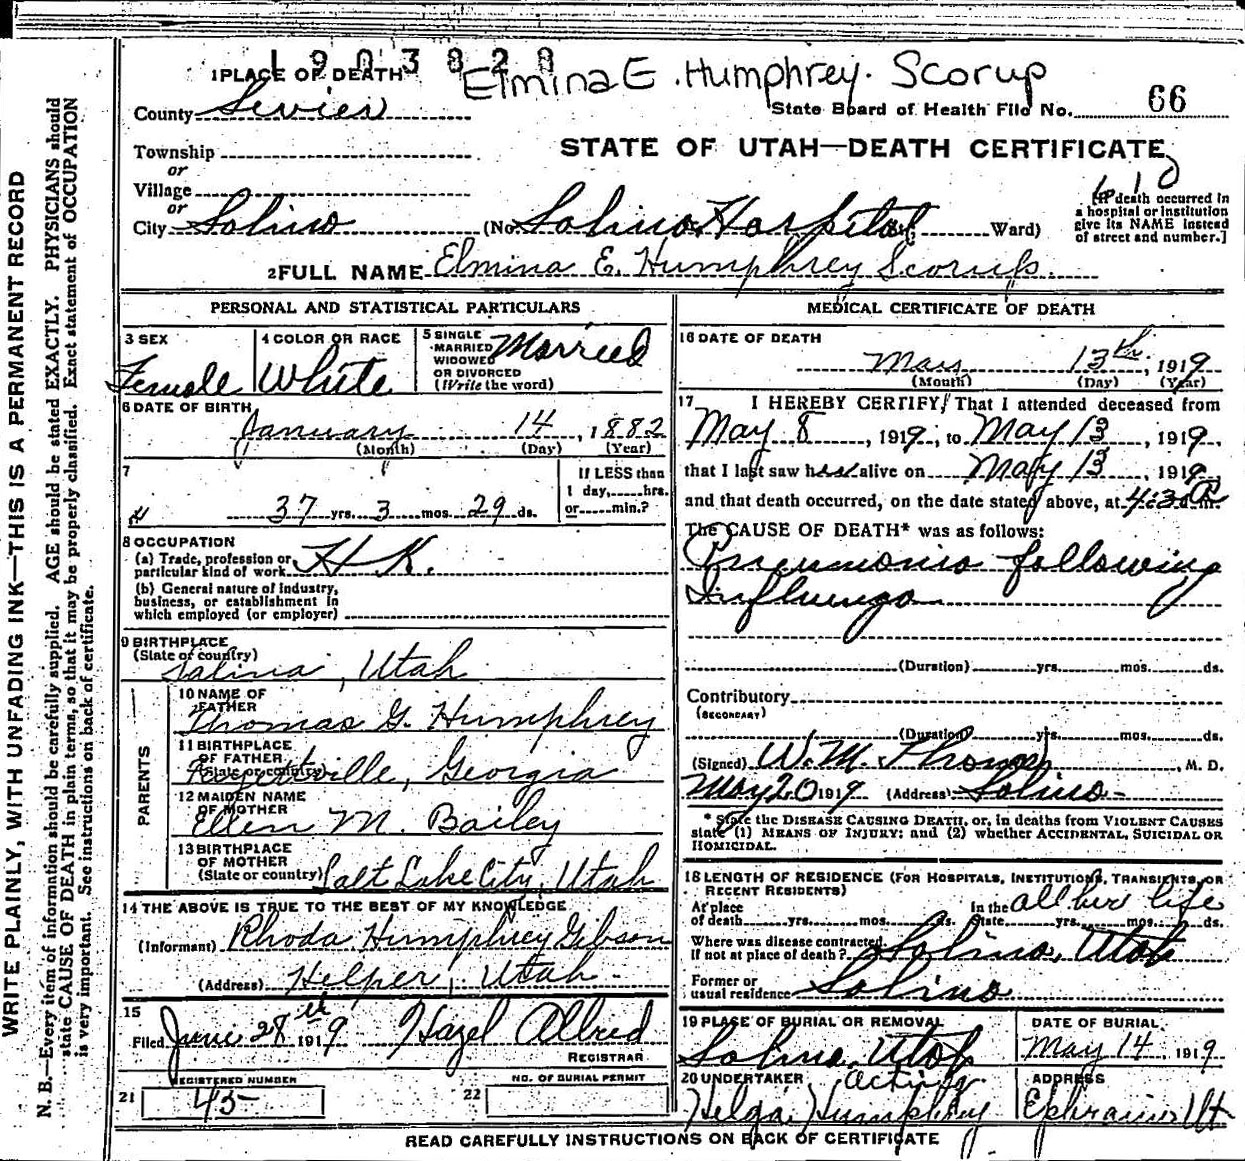 1903828
1 PLACE OF DEATH Elmina E. Humphrey. Scorup
County Sevier State Board of Health File No. 66
Township
or
Village
or
STATE OF UTAH—DEATH CERTIFICATE
City Salina (No. Salina Hospital St. Ward)
[If death occurred in
a hospital or institution
give its NAME instead
of street and number.]
2 FULL NAME Elmina E. Humphrey Scorup
PERSONAL AND STATISTICAL PARTICULARS
3 SEX Female
4 COLOR OR RACE White
5 SINGLE
MARRIED
WIDOWED
OR DIVORCED
(Write the word) Married
6 DATE OF BIRTH
January 14, 1882
(Month) (Day) (Year)
7
37 yrs. 3 mos. 29 ds.
If LESS than
1 day, hrs.
or min.?
8 OCCUPATION
(a) Trade, profession or
particular kind of work H K.
(b) General nature of industry,
business, or establishment in
which employed (or employer)
9 BIRTHPLACE
(State or country)
Salina, Utah
PARENTS
10 NAME OF
FATHER
Thomas G. Humphrey
11 BIRTHPLACE
OF FATHER
(State or country)
Georgia
12 MAIDEN NAME
OF MOTHER
Ellen M. Bailey
13 BIRTHPLACE
OF MOTHER
(State or country) Salt Lake City, Utah
14 THE ABOVE IS TRUE TO THE BEST OF MY KNOWLEDGE
(Informant) Rhoda Humphrey Gibson
(Address) Helper, Utah
15
Filed June 28th 1919 Hazel Allred
REGISTRAR
REGISTERED NUMBER
21 45
NO. OF BURIAL PERMIT
22
MEDICAL CERTIFICATE OF DEATH
16 DATE OF DEATH
May 13th, 1919
(Month) (Day) (Year)
17 I HEREBY CERTIFY, That I attended deceased from
May 8, 1919, to May 13, 1919,
that I last saw her alive on May 13, 1919
and that death occurred, on the date stated above, at 4:30 P. m.
The CAUSE OF DEATH* was as follows:
Pneumonia following
Influenza
(Duration) yrs. mos. ds.
Contributory
(SECONDARY)
(Duration) yrs. mos. ds.
(Signed) W. M. , M. D.
May 20 1919 (Address) Salina
* State the DISEASE CAUSING DEATH, or, in deaths from VIOLENT CAUSES
state (1) MEANS OF INJURY; and (2) whether ACCIDENTAL, SUICIDAL OR
HOMICIDAL.
18 LENGTH OF RESIDENCE (FOR HOSPITALS, INSTITUTIONS, TRANSIENTS, OR
RECENT RESIDENTS)
At place
of death yrs. mos. ds.
In the
State yrs. mos. ds. all her life
Where was disease contracted
if not at place of death? Salina, Utah
Former or
usual residence Salina
19 PLACE OF BURIAL OR REMOVAL
Salina Utah
DATE OF BURIAL
May 14, 1919
20 UNDERTAKER acting
Helga Humphrey
ADDRESS
Ephraim Ut
READ CAREFULLY INSTRUCTIONS ON BACK OF CERTIFICATE
WRITE PLAINLY, WITH UNFADING INK—THIS IS A PERMANENT RECORD
N. B.—Every item of information should be carefully supplied. AGE should be stated EXACTLY. PHYSICIANS should
state CAUSE OF DEATH in plain terms, so that it may be properly classified. Exact statement of OCCUPATION
is very important. See instructions on back of certificate.